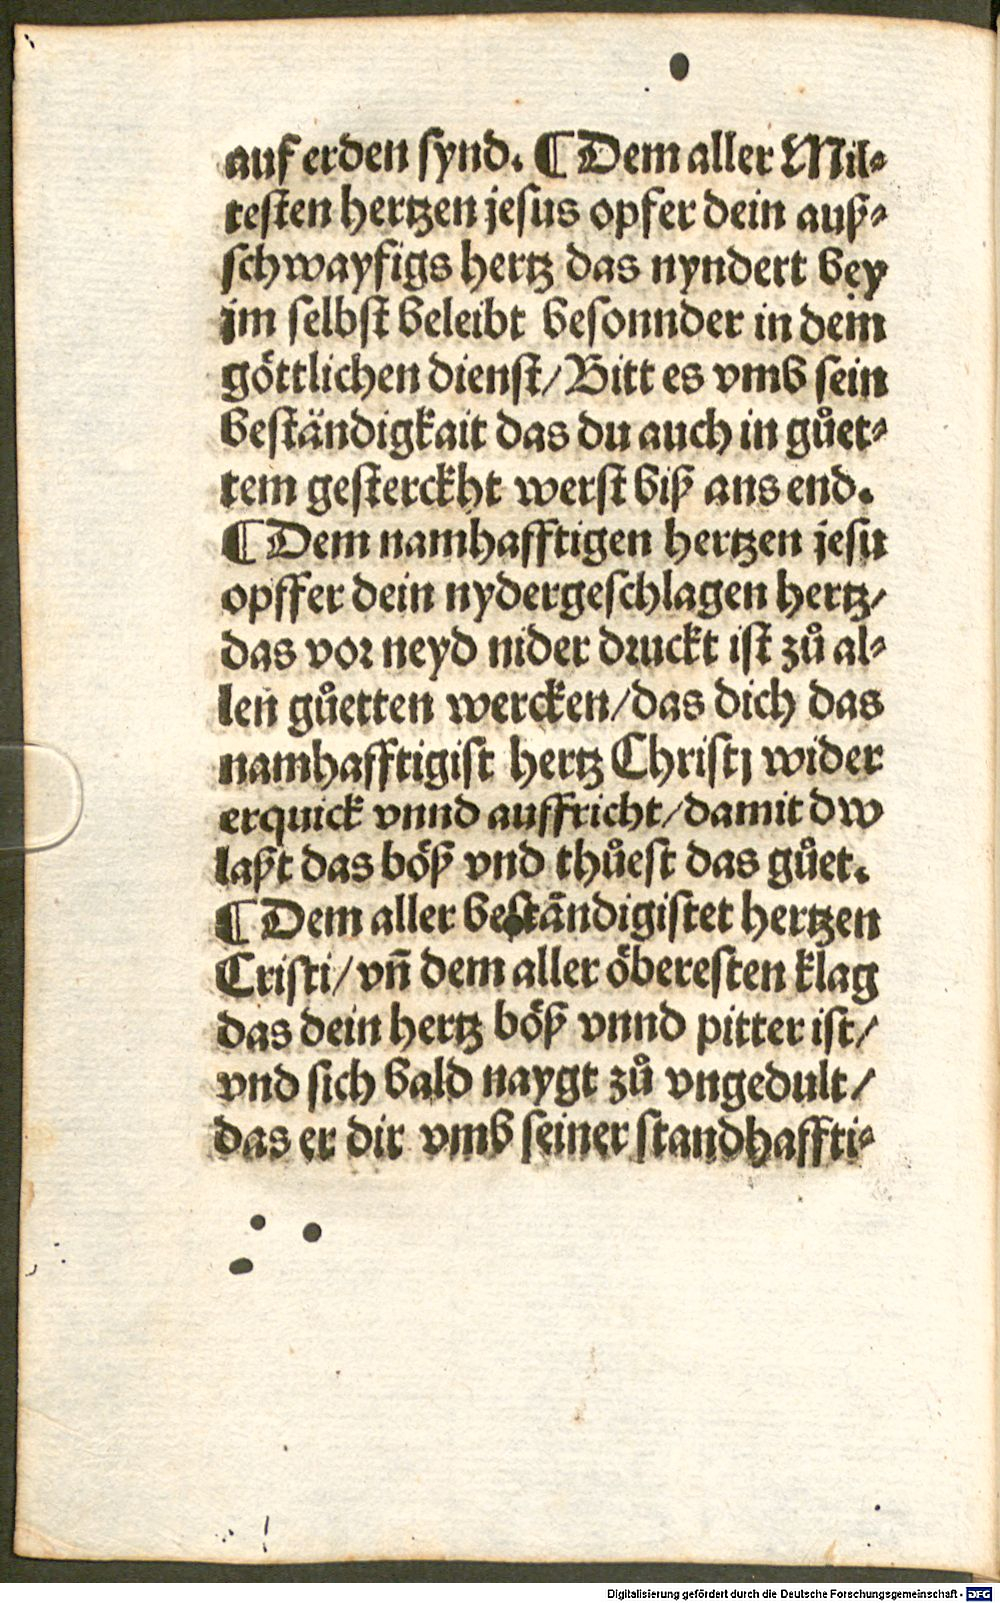 auf erden synd. ⁋ Dem aller Mil⸗
testen hertzen jesus opfer dein auß⸗
schwayfigs hertz das nyndert bey
jm selbst beleibt besonnder in dem
göttlichen dienst/ Bitt es vmb sein
beständigkait das du auch in gůet⸗
tem gesterckht werst biß ans end.
⁋ Dem namhafftigen hertzen jesu
opffer dein nydergeschlagen hertz/
das vor neyd nider druckt ist zů al⸗
len gůetten wercken/das dich das
namhafftigist hertz Christj wider
erquick vnnd auffricht/damit dw
laßt das böß vnd thůest das gůet.
⁋ Dem aller beständigistet hertzen
Cristi/vn̄ dem aller öberesten klag
das dein hertz böß vnnd pitter ist/
vnd sich bald naygt zů vngedult/
das er dir vmb seiner standhaffti⸗
Digitalisierung gefördert durch die Deutsche Forschungsgemeinschaft - DFG